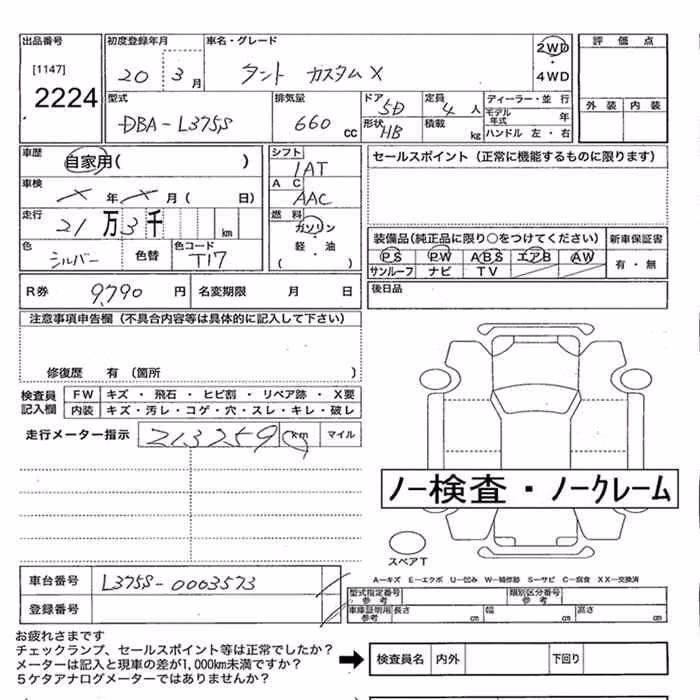 出品番号
[1147]
2224
初度登録年月
20 3月
車名・グレード
タント カスタムX
2WD
・
4WD
評価点
外装 内装
型式
DBA-L375S
排気量
660 cc
ドア 5D
形状 HB
定員 4人
積載 kg
ディーラー・並行
モデル年式 年
ハンドル 左・右
車歴
自家用( )
車検
X年X月( 日)
走行
21万3千 km
色
シルバー
色替
色コード
T17
シフト
IAT
AC
AAC
燃料
ガソリン
・
軽・油
( )
セールスポイント(正常に機能するものに限ります)
装備品(純正品に限り○をつけてください)
新車保証書
PS PW ABS エアB AW
サンルーフ ナビ TV
有・無
R券 9,790円
名変期限 月 日
後日品
注意事項申告欄(不具合内容等は具体的に記入して下さい)
修復歴 有(箇所 )
検査員記入欄
FW キズ・飛石・ヒビ割・リペア跡・X要
内装 キズ・汚レ・コゲ・穴・スレ・キレ・破レ
走行メーター指示 213259 km マイル
ノー検査・ノークレーム
スペアT
A―キズ E―エクボ U―凹み W―補修跡 S―サビ C―腐食 XX―交換済
車台番号 L375S-0003573
登録番号
型式指定番号 参考
類別区分番号 参考
車庫証明用 参考
長さ cm 幅 cm 高さ cm
お疲れさまです
チェックランプ、セールスポイント等は正常でしたか?
メーターは記入と現車の差が1,000km未満ですか?
5ケタアナログメーターではありませんか?
検査員名 内外 下回り